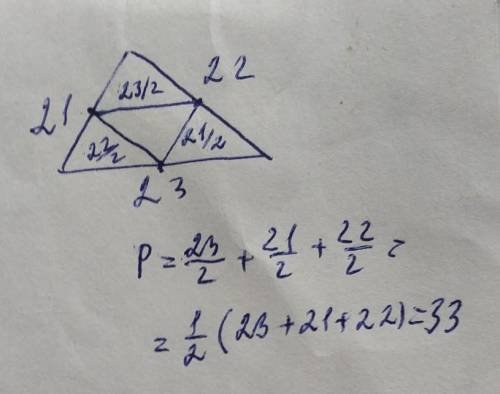 22
23/2
21
22/2
21/2
23
P = 23/2 + 21/2 + 22/2 =
= 1/2 (23 + 21 + 22) = 33